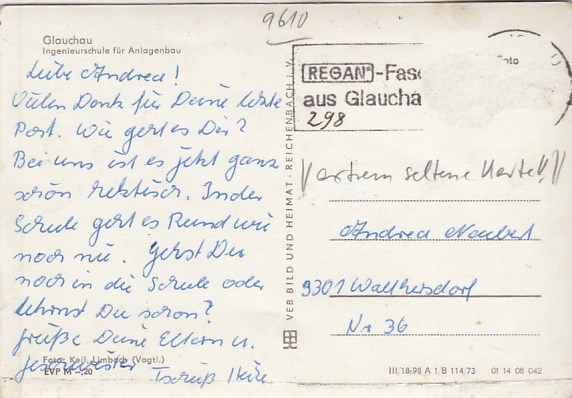 9610
Glauchau
Ingenieurschule für Anlagenbau
Liebe Andrea!
Vielen Dank für Deine letzte
Post. Wie geht es Dir?
Bei uns ist es jetzt ganz
schön hektisch. In der
Schule geht es Rund wie
noch nie. Gehst Du
noch in die Schule oder
lehrnst Du schon?
Grüße Deine Eltern u.
Geschwister Tschüß
Foto: Keil, Limbach (Vogtl.)
EVP M –,20
VEB BILD UND HEIMAT · REICHENBACH i. V.
REGAN-Fas
aus Glaucha
298
extrem seltene Karte!!
Andrea Naubert
9301 Walthersdorf
Nr 36
III/18/98 A 1 B 114/73 01 14 08 042